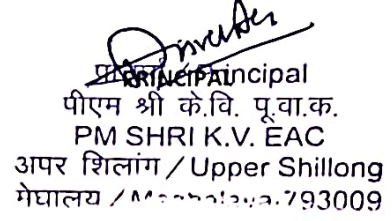 प्राचार्य / Principal
PRINCIPAL
पीएम श्री के.वि. पू.वा.क.
PM SHRI K.V. EAC
अपर शिलांग / Upper Shillong
मेघालय / Meghalaya-793009